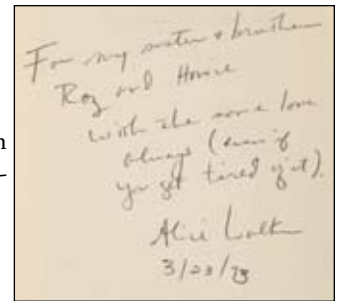 For my sister & brother
Roz and Howie
with the same love
always (even if
you get tired of it).
Alice Walker
3/23/73